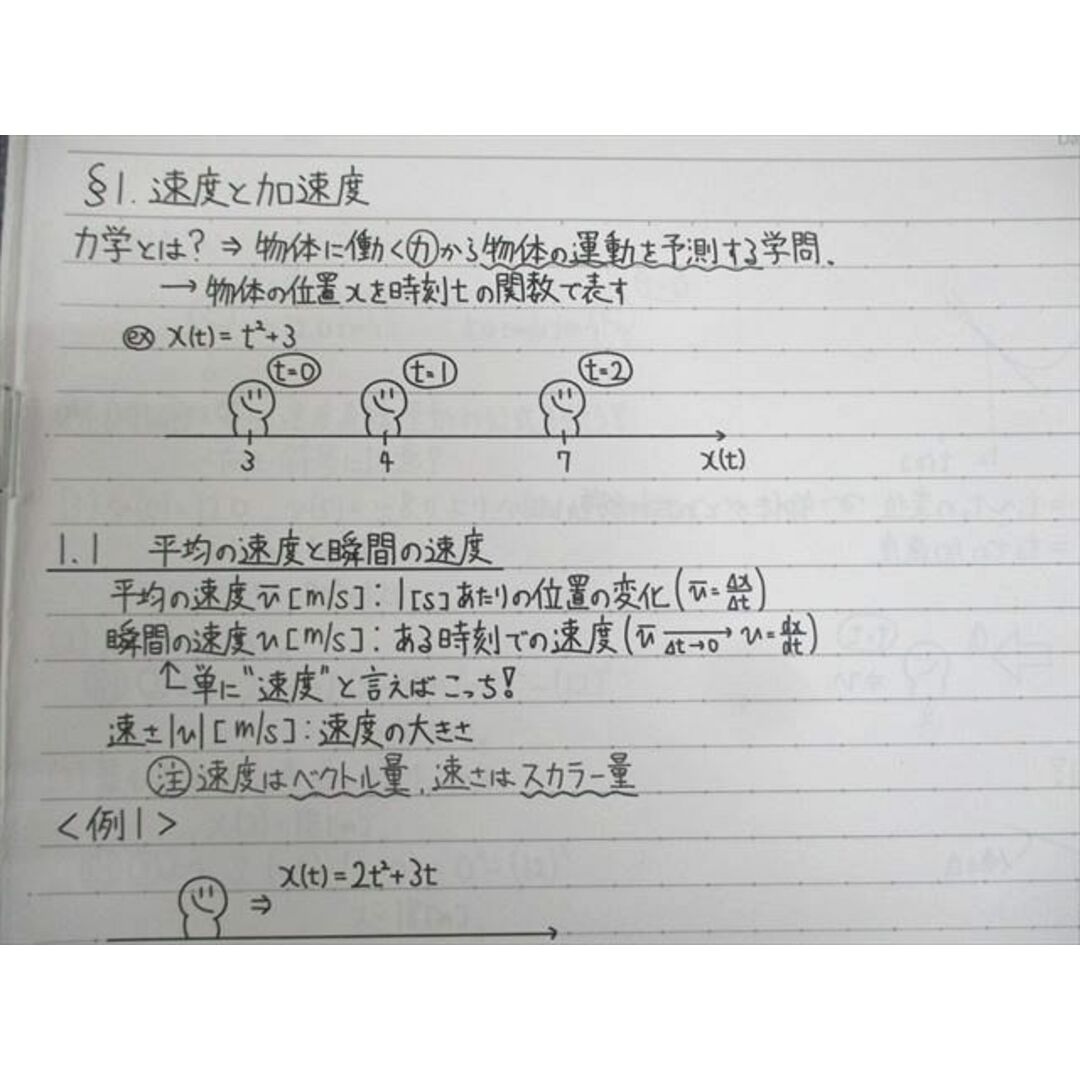 §1. 速度と加速度
力学とは? ⇒ 物体に働く力から物体の運動を予測する学問.
→ 物体の位置xを時刻tの関数で表す
ex x(t) = t²+3
t=0 t=1 t=2
3 4 7 x(t)
1.1 平均の速度と瞬間の速度
平均の速度 v̄ [m/s] : 1[s]あたりの位置の変化 (v̄ = Δx/Δt)
瞬間の速度 v [m/s] : ある時刻での速度 (v̄ →[Δt→0] v = dx/dt)
↑ 単に"速度"と言えばこっち!
速さ |v| [m/s] : 速度の大きさ
注 速度はベクトル量, 速さはスカラー量
<例1>
⇒ x(t) = 2t²+3t